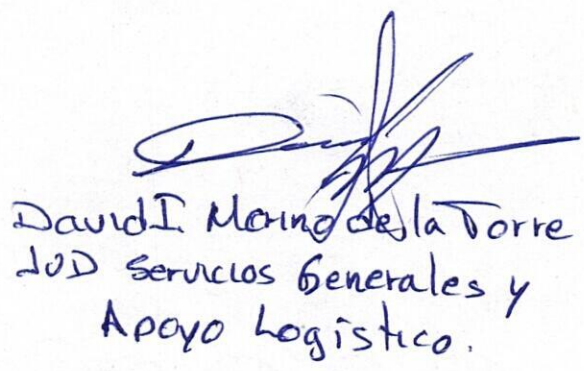 David I. Merino de la Torre
JUD Servicios Generales y
Apoyo Logístico.